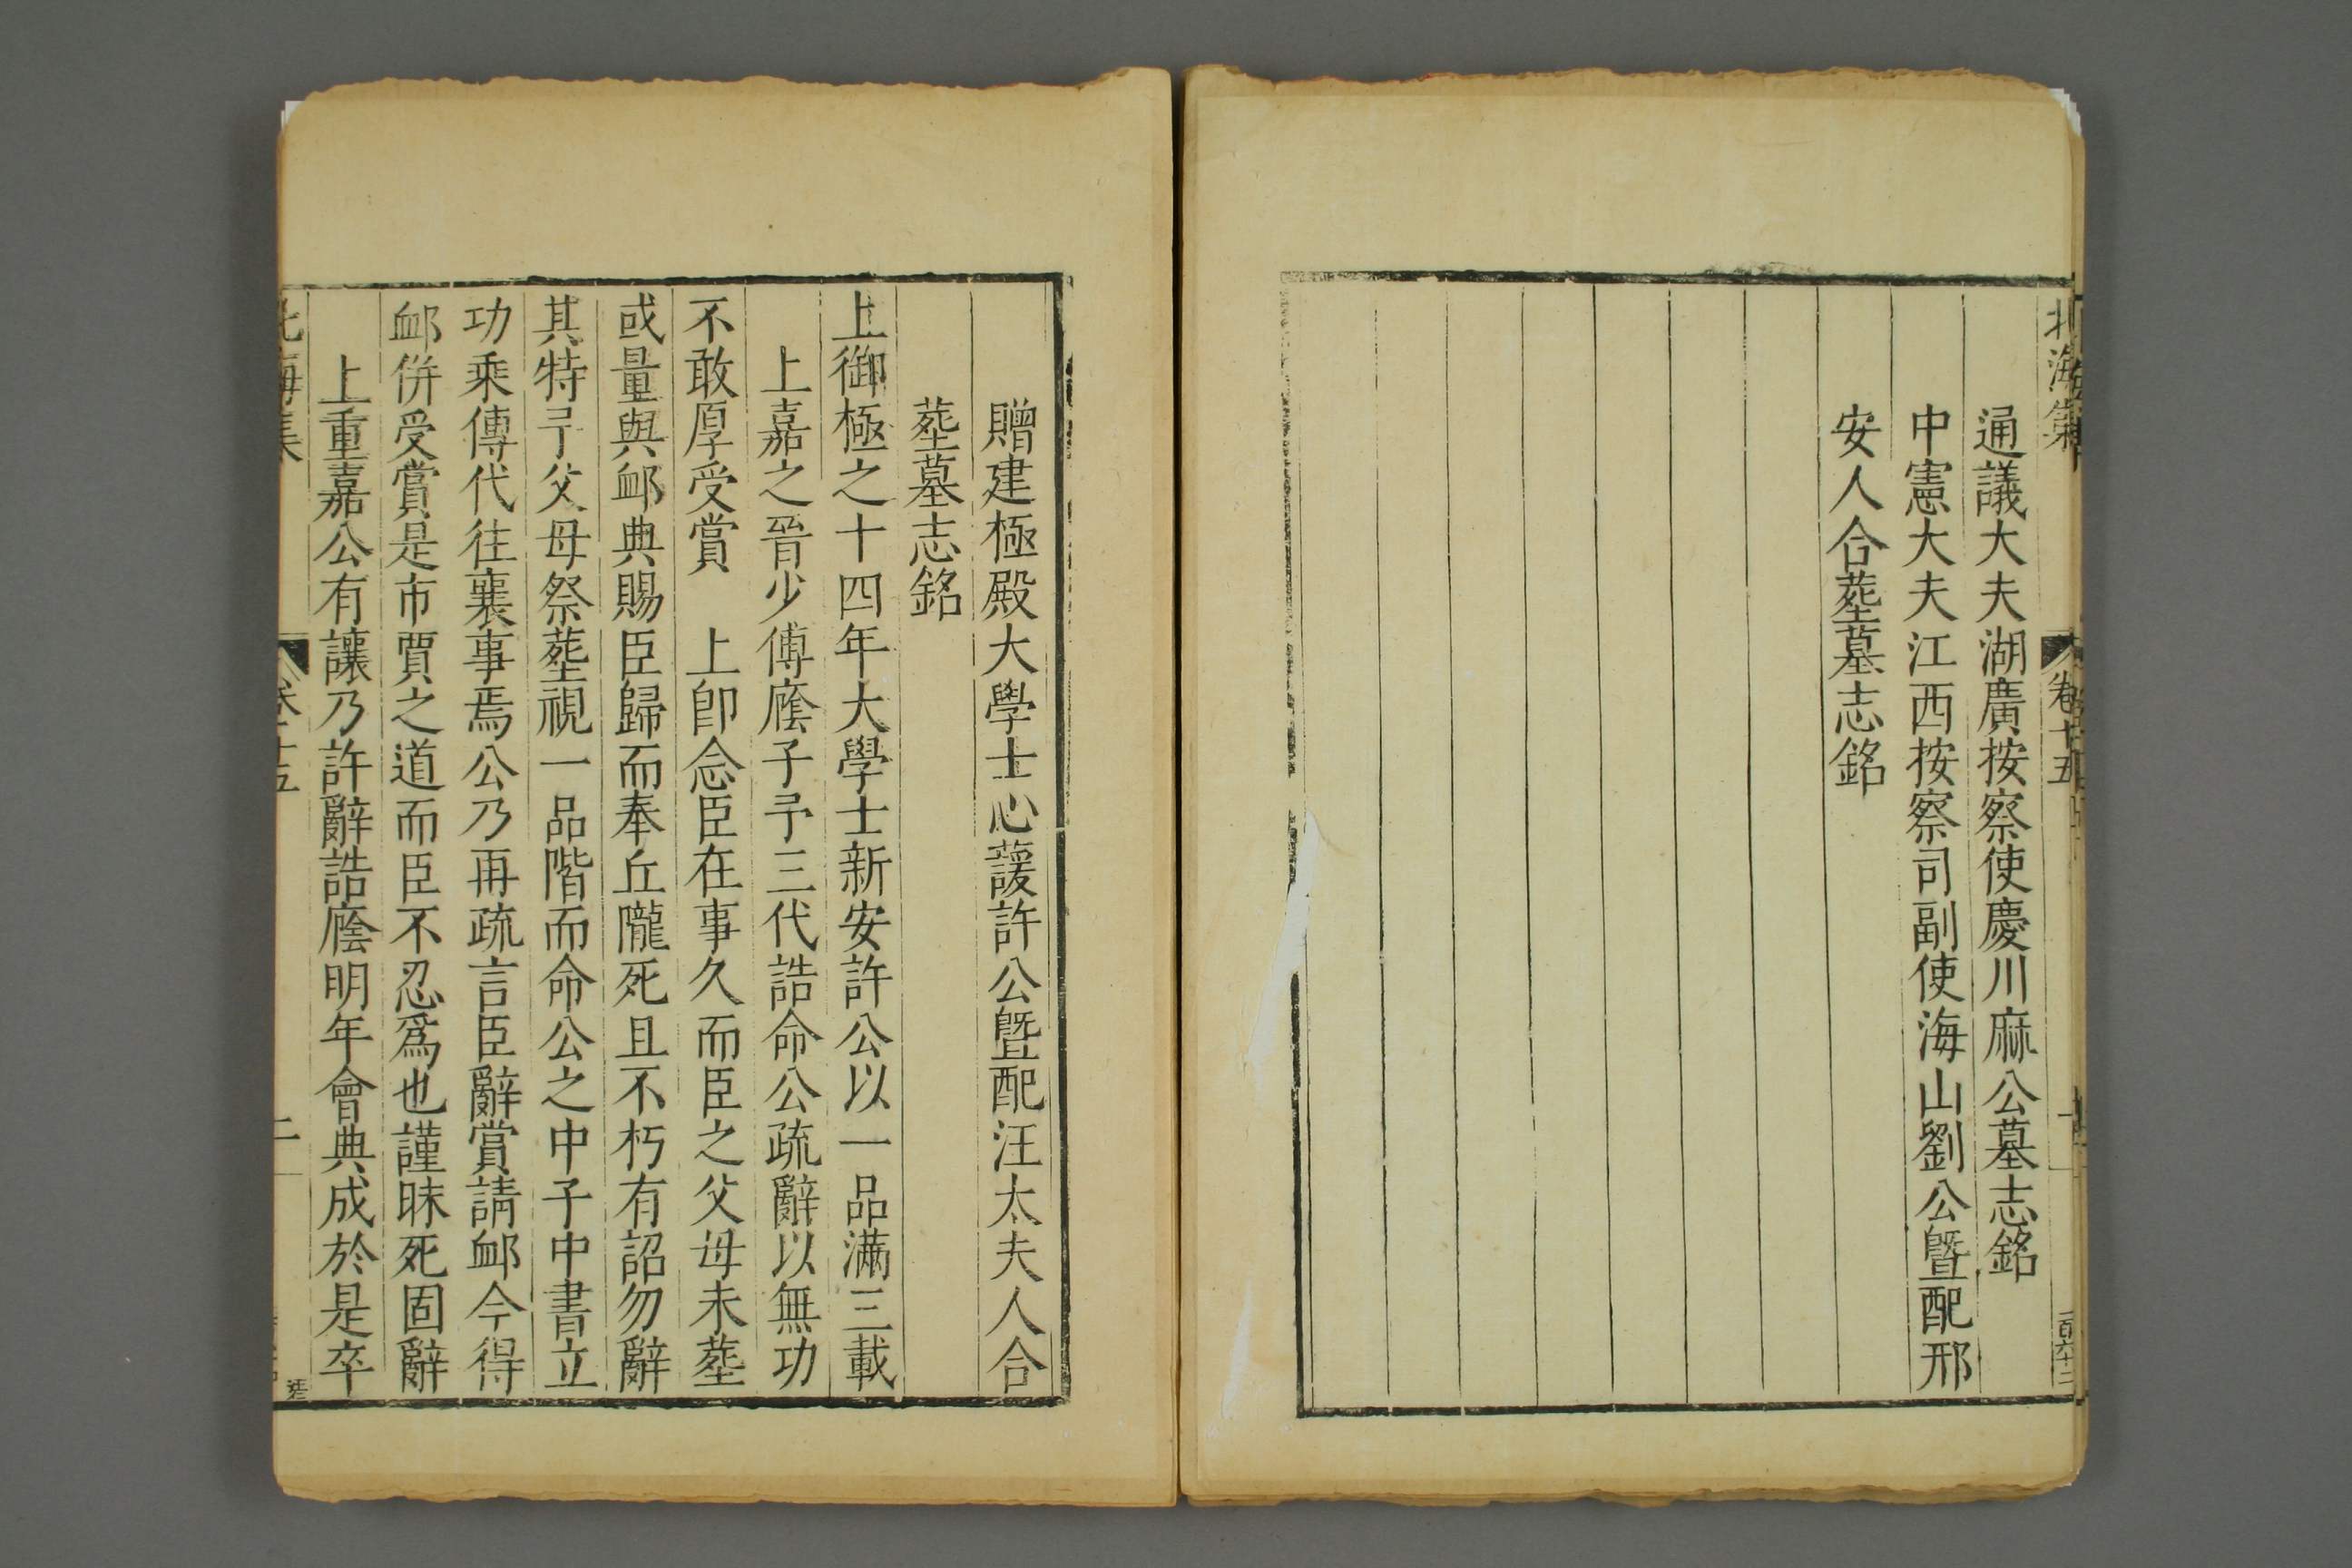 北海集 卷十五 一 百六十三
通議大夫湖廣按察使慶川麻公墓志銘
中憲大夫江西按察司副使海山劉公曁配邢
安人合塟墓志銘
贈建極殿大學士心蘐許公曁配汪太夫人合
塟墓志銘
上御極之十四年大學士新安許公以一品滿三載
上嘉之晉少傅廕子予三代誥命公疏辭以無功
不敢厚受賞 上卽念臣在事久而臣之父母未塟
或量與衈典賜臣歸而奉丘隴死且不朽有詔勿辭
其特予父母祭塟視一品階而命公之中子中書立
功乘傳代往襄事焉公乃再疏言臣辭賞請衈今得
衈併受賞是市賈之道而臣不忍爲也謹昧死固辭
上重嘉公有讓乃許辭誥廕明年會典成於是卒
北海集 卷十五 二